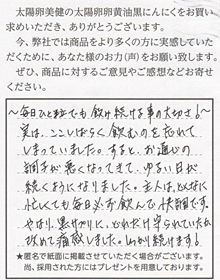 太陽卵美健の太陽卵卵黄油黒にんにくをお買い
求めいただき、ありがとうございます。
今、弊社では商品をより多くの方に実感していた
だくために、あなた様のお力(声)をお願い致します。
ぜひ、商品に対するご意見やご感想などお寄せ
ください。
〜毎日ひと粒でも飲み続ける事の大切さ!〜
実は、ここしばらく飲むのを忘れて
しまっていました。すると、お通じの
調子が悪くなってきて、ゆるい日が
続くようになりました。主人は、どんなに
忙しくても毎日必ず飲んで快調です。
やはり、黒ガリに、どれだけ守られていたか
改めて痛感しました。しっかり続けます!
★匿名で紙面に掲載させていただく場合がございます。
尚、採用された方にはプレゼントを用意しております。